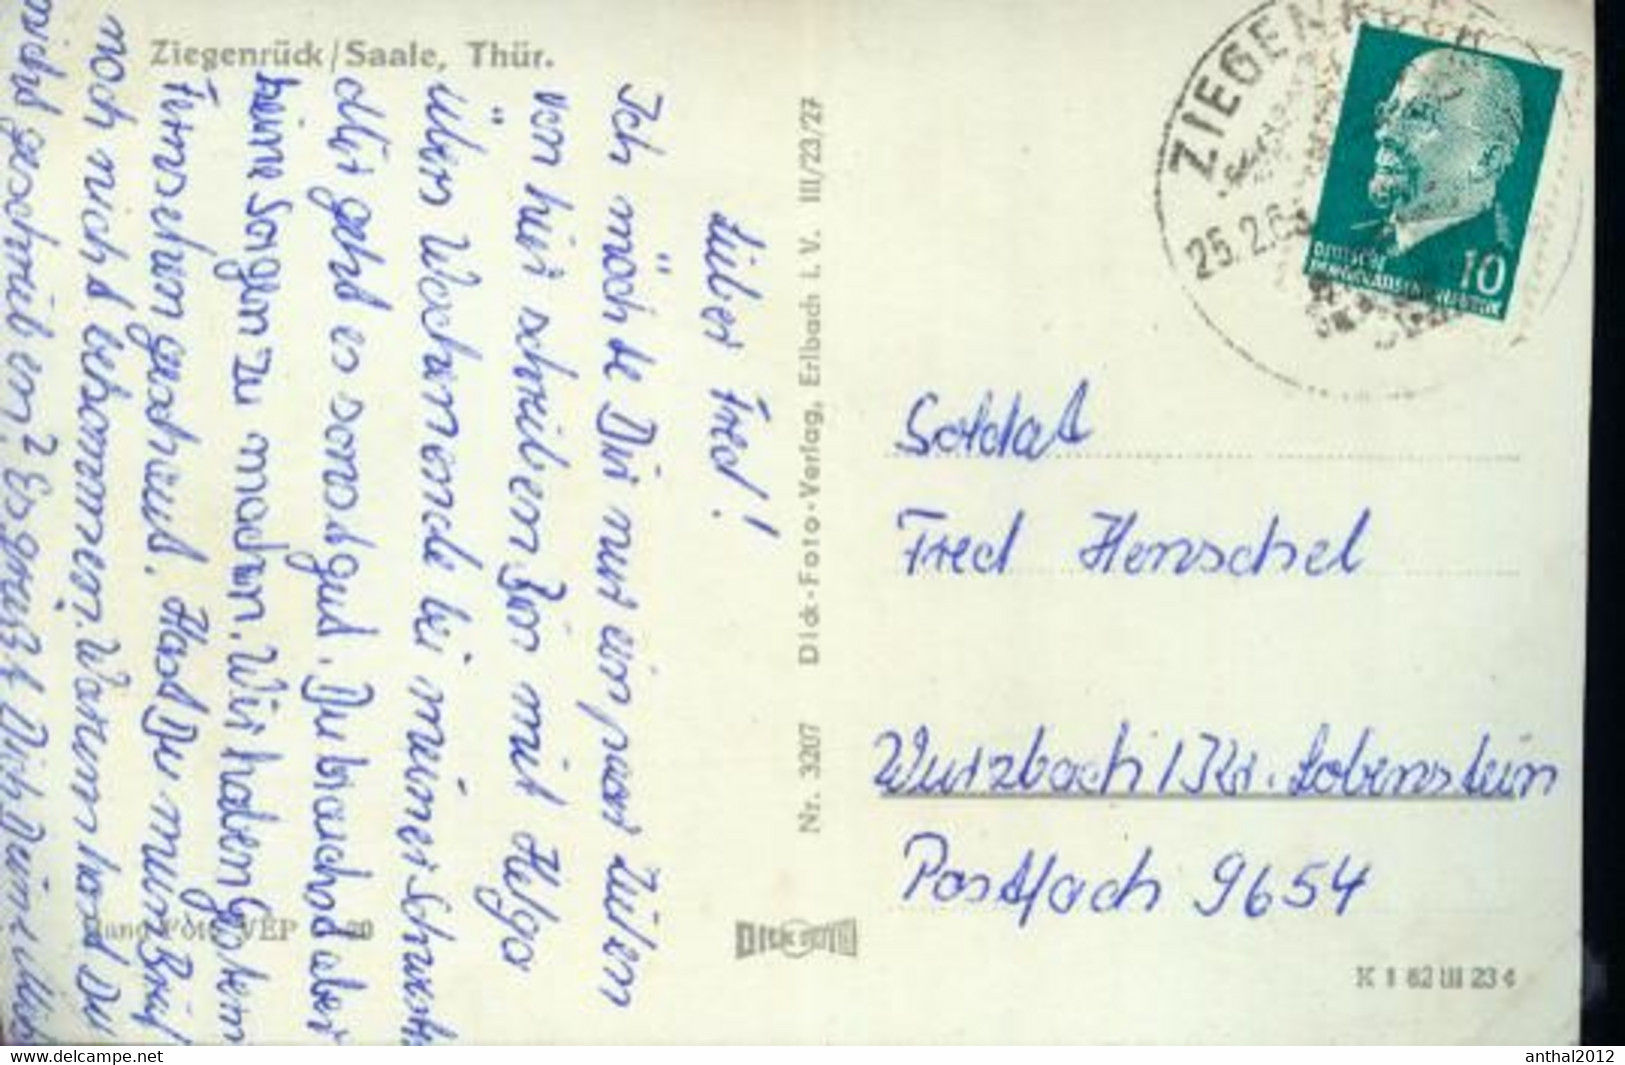 Ziegenrück/Saale, Thür.
Lieber Fred!
Ich möchte Dir nur ein paar Zeilen
von hier schreiben. Bin mit Helga
übers Wochenende bei meiner Schwester.
Mir geht es sonst gut. Du brauchst aber
keine Sorgen zu machen. Wir haben Gestern
Fernsehen geschaut. Hast Du mein Brief
noch nicht bekommen. Warum hast Du
nicht geschrieben? Es grüßt Dich Deine
Hand Foto VEP
Nr. 3207 Dick-Foto-Verlag, Erlbach i. V. III/23/27
DICK FOTO
ZIEGENRÜCK
25.2.63
DEUTSCHE
DEMOKRATISCHE REPUBLIK
10
Soldat
Fred Henschel
Wurzbach / Kr. Lobenstein
Postfach 9654
K 1 62 III 23 4
www.delcampe.net
anthal2012